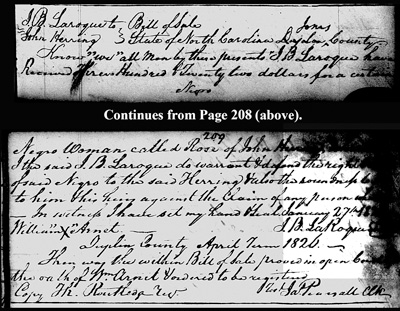 J B Laroque to Bill of Sale Jones
John Herring State of North Carolina Duplin County
Know all Men by these presents J. B. Laroque have
Received of Hundred & Twenty two dollars for a certain
Negro
Continues from Page 208 (above).
209
Negro Woman called Rose of John
I the said J. B. Laroque do warrant & defend the right
of said Negro to the said Herring & also the soundness
to him this being against the Claim of any person
In witness I have set my hand & Seal January 27th
William X Arnet J. B. LaRoque
Duplin County April Term 1820.
Then was the within Bill of Sale proved in open
the oath of Wm. Arnet & ordered to be registered
Copy Test Jas Pearsall Clk